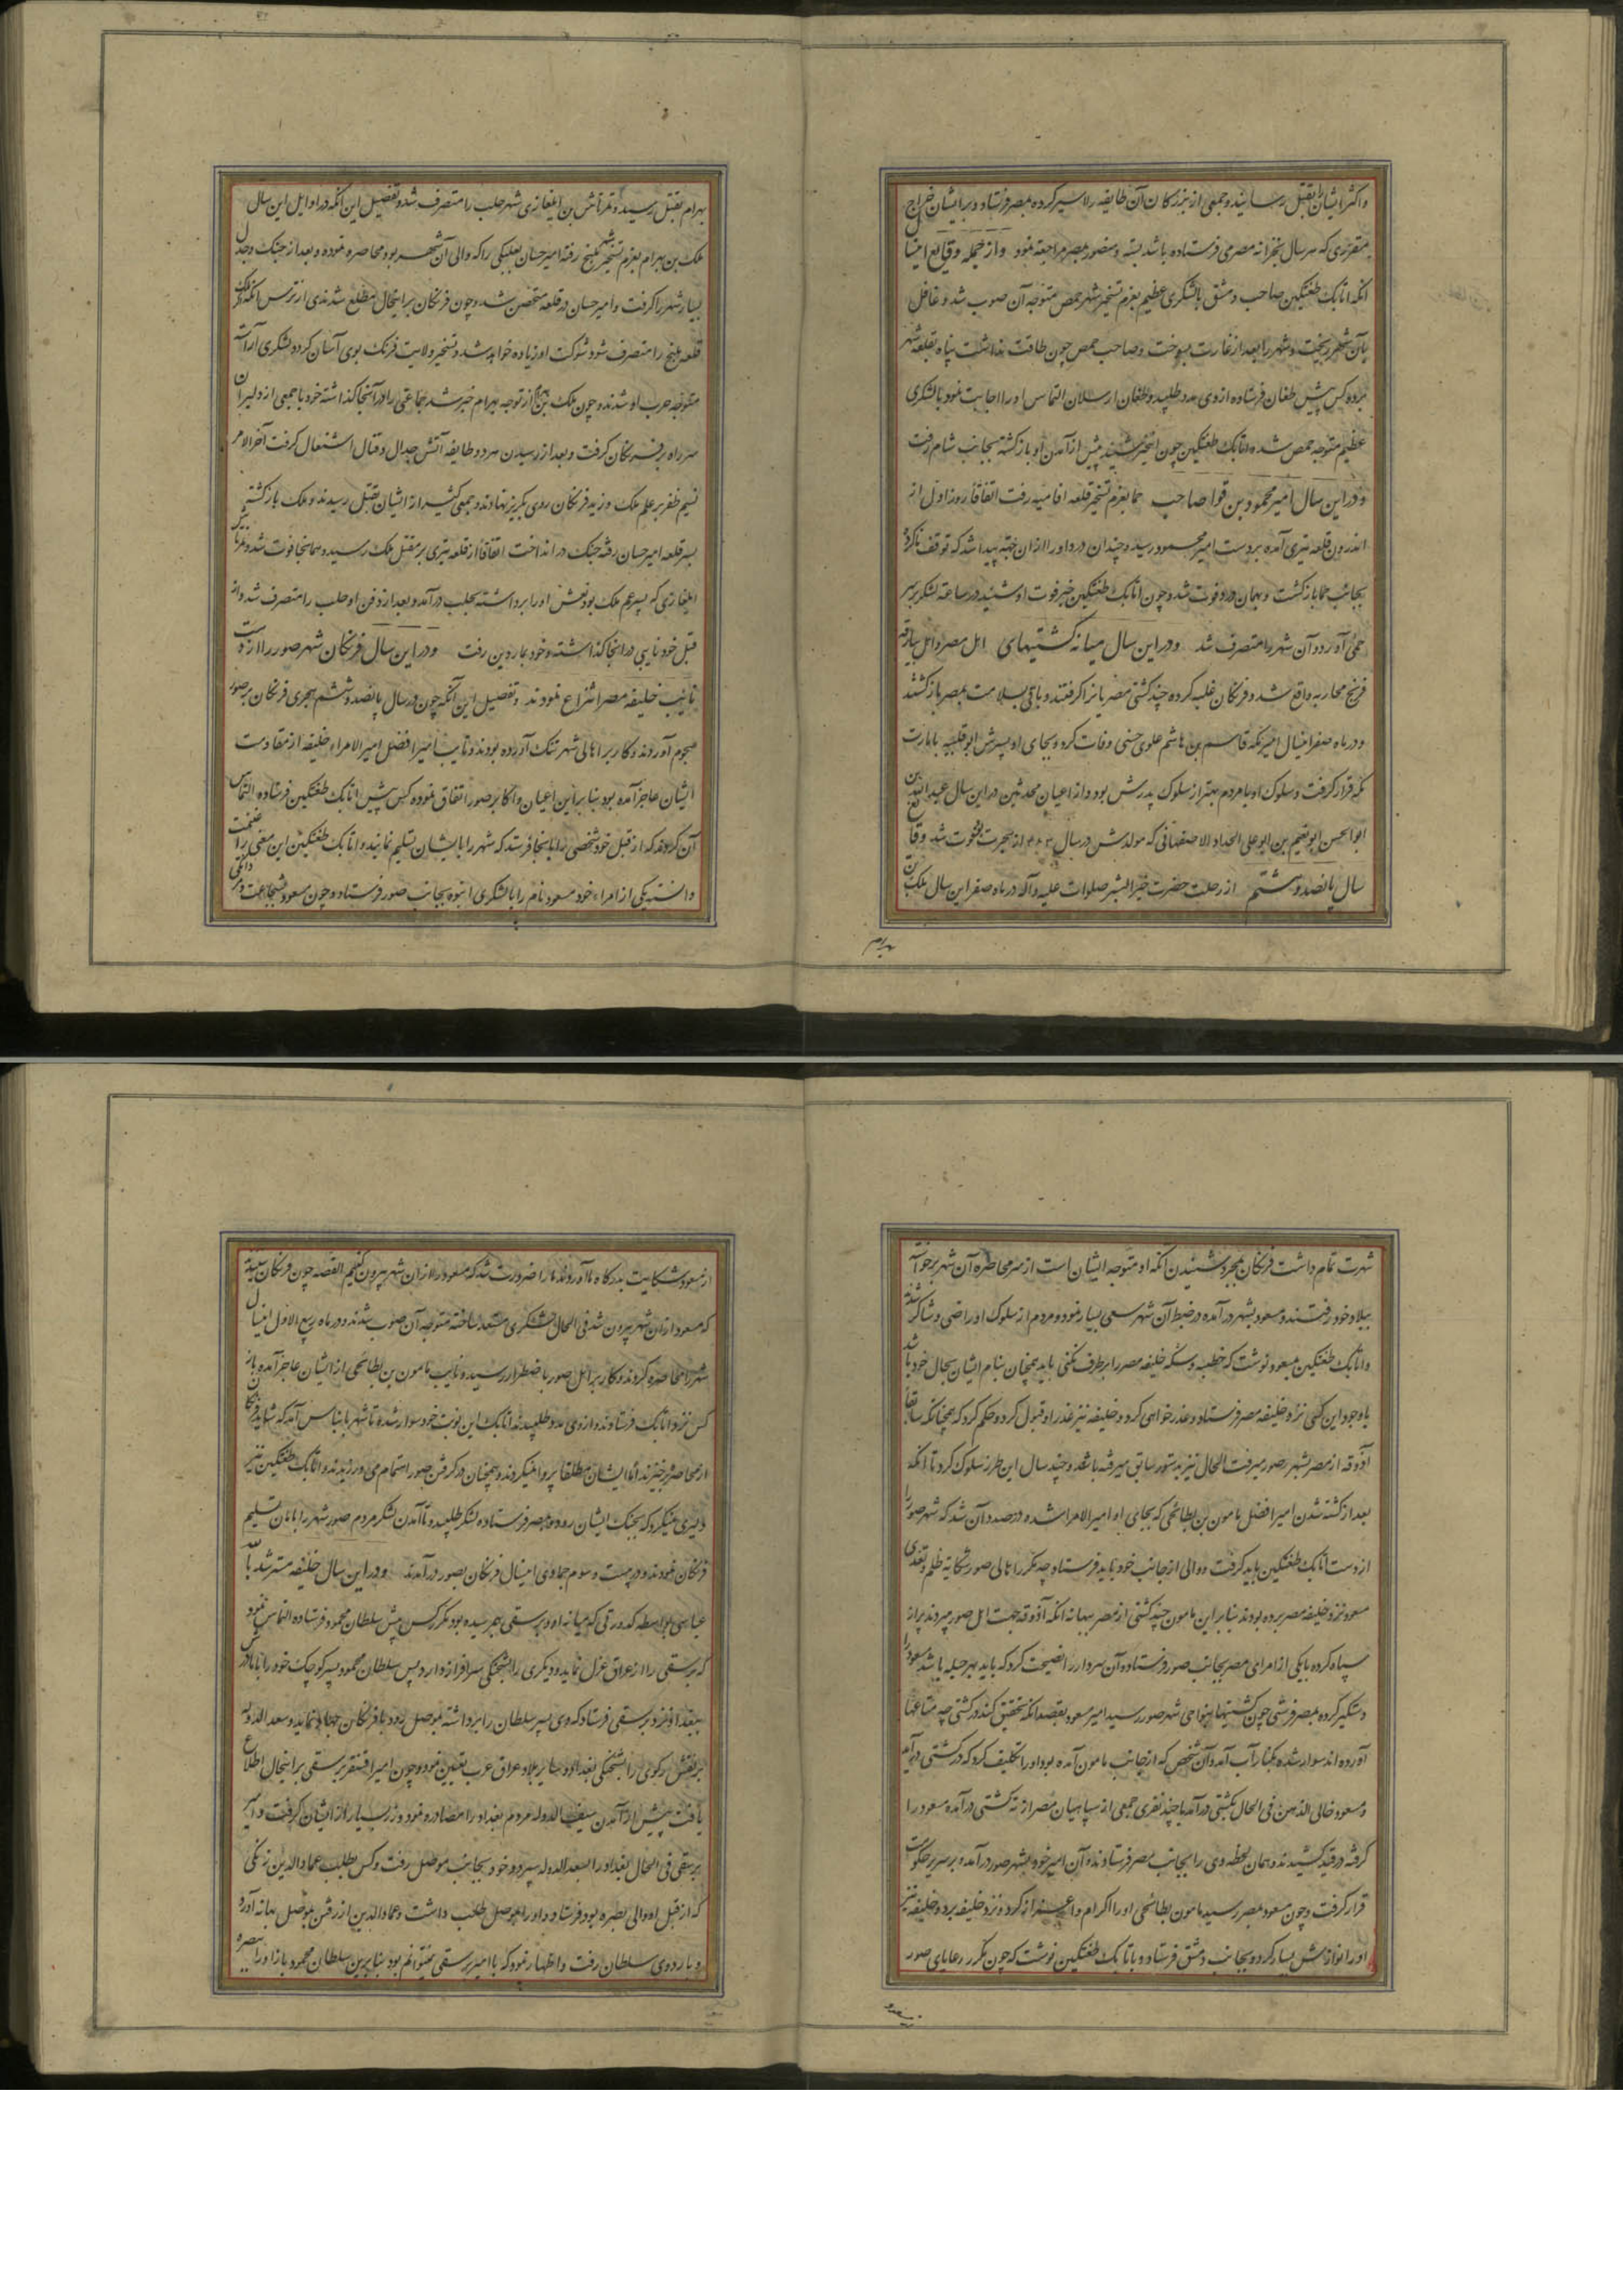 واکثر ایشان بقتل رسانید و جمعی از بزرکان آن طایفه را اسیر کرده بمصر فرستاد و بر ایشان خراج
مقرری که هر سال بخزانه مصر می فرستاده باشند بسته و منصور بمصر مراجعة نمود و از جمله وقایع اینسال
انکه اتابک طغتکین صاحب دمشق با لشکری عظیم بعزم تسخیر شهر حمص متوجه آن صوب شد و غافل
بآن شهر ریخت و شهر را بعد از غارت بسوخت و صاحب حمص چون طاقت نداشت پناه بقلعه شهر
برده کس پیش طغان فرستاده از وی مدد طلبید و طغان ارسلان التماس او را اجابت نموده با لشکری
عظیم متوجه حمص شده و اتابک طغتکین چون اینخبر شنید پیش از آمدن او بازکشته بجانب شام رفت
و در این سال امیر محمود بن قراجا صاحب حما بعزم تسخیر قلعه افامیه رفت اتفاقا روز اول از
اندرون قلعه تیری آمده بر دست امیر محمود رسید و چندان درد او را از ان جهة پیدا شد که توقف ناکرده
بجانب حما بازکشت و بهمان درد فوت شد و چون اتابک طغتکین خبر فوت او شنید در ساعة لشکر بر سر
حمی آورد و آن شهر را متصرف شد و در این سال میانه کشتیهای اهل مصر و اهل بنادقه
فرنج محاربه واقع شد و فرنکان غلبه کرده چند کشتی مصریانرا کرفتند و باقی بسلامت بمصر بازکشتند
و در ماه صفر اینسال امیر مکه قاسم بن هاشم علوی حسنی وفات کرد و بجای او پسرش ابو فلیته بامارت
مکه قرار کرفت و سلوک او با مردم بهتر از سلوک پدرش بود و از اعیان محدثین در این سال عبد الله بن
ابو الحسن ابو نعیم بن ابو علی الحداد الاصفهانی که مولدش در سال از هجرت بود فوت شد وقایع
سال پانصد و هشتم از رحلت حضرت خیر البشر صلوات علیه و آله در ماه صفر این سال ملک بن
بهرام
بهرام بقتل رسید و تمرتاش بن ایلغازی شهر حلب را متصرف شد و تفصیل این انکه در اوایل این سال
ملک بن بهرام بعزم تسخیر منبج رفته امیر حسان بعلبکی را که والی آن شهر بود محاصره نموده و بعد از جنک و جدال
بسیار شهر را کرفت و امیر حسان در قلعه متحصن شد و چون فرنکان بر اینحال مطلع شدند از ترس انکه اکر ملک
قلعه منبج را متصرف شود شوکت او زیاده خواهد شد و تسخیر ولایت فرنک بوی آسان کردد لشکری آراسته
متوجه حرب او شدند و چون ملک بن بهرام از توجه بهرام خبر شد جماعتی را در آنجا کذاشته خود با جمعی از دلیران
سر راه بر فرنکان کرفت و بعد از رسیدن هر دو طایفه آتش جدال و قتال اشتعال کرفت آخر الامر
نسیم ظفر بر علم ملک وزید فرنکان روی بکریز نهادند و جمعی کثیر از ایشان بقتل رسیدند و ملک بازکشته
بسر قلعه امیر حسان رفته جنک در انداخت اتفاقا از قلعه تیری بر مقتل ملک رسید و همانجا فوت شد و تمرتاش بن
ایلغازی که پسر عم ملک بود نعش او را برداشته بحلب درآمد و بعد از دفن او حلب را متصرف شد و از
قبل خود نایبی در انجا کذاشته و خود بماردین رفت و در این سال فرنکان شهر صور را از دست
نایب خلیفه مصر انتزاع نمودند و تفصیل این آنکه چون در سال پانصد و ششم هجری فرنکان بر صور
هجوم آوردند و کار بر اهالی شهر تنک آورده بودند و نایب امیر افضل امیر الامراء خلیفه از مقاومت
ایشان عاجز آمده بود بنا بر این اعیان و اکابر صور اتفاق نموده کس پیش اتابک طغتکین فرستاده التماس
آن کردند که از قبل خود شخصی را بانجا فرستد که شهر را بایشان تسلیم نمایند و اتابک طغتکین این معنی را غنیمت
دانسته یکی از امراء خود مسعود نام را با لشکری انبوه بجانب صور فرستاد و چون مسعود بشجاعت و مردانکی
شهرت تمام داشت فرنکان بمجرد شنیدن آنکه او متوجه ایشان است از سر محاصره آن شهر برخواسته
ببلاد خود رفتند و مسعود بشهر درآمده در ضبط آن شهر سعی بسیار نمود و مردم از سلوک او راضی و شاکر شدند
و اتابک طغتکین بمسعود نوشت که خطبه و سکه خلیفه مصر را برطرف نکنی باید همچنان بنام ایشان بحال خود باشد
با وجود این کس نزد خلیفه مصر فرستاد و عذرخواهی کرد و خلیفه نیز عذر او قبول کرد و حکم کرد که همچنانکه سابقا
آذوقه از مصر بشهر صور میرفت الحال نیز بدستور سابق میرفته باشد و چند سال این طرز سلوک کرد تا انکه
بعد از کشته شدن امیر افضل مامون بن بطائحی که بجای او امیر الامرا شده در صدد آن شد که شهر صور را
از دست اتابک طغتکین باید کرفت و والی از جانب خود باید فرستاد چه مکرر اهالی صور شکایة ظلم و تعدی
مسعود نزد خلیفه مصر برده بودند بنا بر این مامون چند کشتی از مصر ببهانه انکه آذوقه جهت اهل صور میبرند پر از
سپاه کرده با یکی از امرای مصر بجانب صور فرستاده آن سردار را نصیحت کرد که باید بهر حیله باشد مسعود را
دستکیر کرده بمصر فرستی چون کشتیها بنواحی شهر صور رسید امیر مسعود بقصد انکه تحقیق کند در کشتی چه متاعها
آورده اند سوار شده بکنار آب آمد و آن شخص که از جانب مامون آمده بود او را تکلیف کرد که در کشتی درآید
و مسعود خالی الذهن فی الحال بکشتی درآمد با چند نفری جمعی از سپاهیان مصر از ته کشتی درآمده مسعود را
کرفته در قید کشیدند و همان لحظه وی را بجانب مصر فرستادند و آن امیر خود بشهر صور درآمد و بر سریر حکومت
قرار کرفت و چون مسعود بمصر رسید مامون بطائحی او را اکرام و اعزاز کرد و نزد خلیفه برد و خلیفه نیز
او را نوازش بسیار کرد و بجانب دمشق فرستاد و باتابک طغتکین نوشت که چون مکرر رعایای صور
از مسعود
از مسعود شکایت بدرکاه ما آوردند ما را ضرورت شد که مسعود را از ان شهر بیرون کنیم القصه چون فرنکان شنیدند
که مسعود از ان شهر بیرون شد فی الحال لشکری مستعد ساخته متوجه آن صوب شدند و در ماه ربیع الاول اینسال
شهر را محاصره کردند و کار بر اهل صور باضطرار رسید و نایب مامون بن بطائحی از ایشان عاجز آمد و باز
کس نزد اتابک فرستادند و از وی مدد طلبیدند اتابک این نوبت خود سوار شده تا شهر بانیاس آمد که شاید فرنکان
از محاصره برخیزند اما ایشان مطلقا پروا نمیکردند و همچنان در کرفتن صور اهتمام می ورزیدند و اتابک طغتکین نیز
دلیری نمیکرد که بجنک ایشان رود و بمصر فرستاده لشکر طلبید و تا آمدن لشکر مردم صور شهر را بامان تسلیم
فرنکان نمودند و در بیست و سوم جمادی اینسال فرنکان بصور درآمدند و در این سال خلیفه مسترشد بالله
عباسی بواسطه کدورتی که میانه او و برسقی بهم رسیده بود مکرر کس پیش سلطان محمود فرستاده التماس نمود
که برسقی را از عراق عزل نماید و دیکری را بشحنکی سرافراز دارد پس سلطان محمود پسر کوچک خود را با مادرش
ببغداد نزد برسقی فرستاد که وی پسر سلطان را برداشته بموصل رود با فرنکان جهاد نماید و سعد الدوله
یرنقش زکوی را بشحنکی بغداد و سایر بلاد عراق عرب تعیین نمود و چون امیر اقسنقر برسقی بر اینحال اطلاع
یافت پیش از آمدن سیف الدوله مردم بغداد را مصادره نمود و زر بسیار از ایشان کرفت و امیر
برسقی فی الحال بغداد را بسعد الدوله سپرد و خود بجانب موصل رفت و کس بطلب عماد الدین زنکی
که از قبل او والی بصره بود فرستاد و او را بموصل طلب داشت و عماد الدین از رفتن بموصل بهانه آورد
و باردوی سلطان رفت و اظهار نمود که با امیر برسقی نمیتوانم بود بنا برین سلطان محمود باز او را ببصره